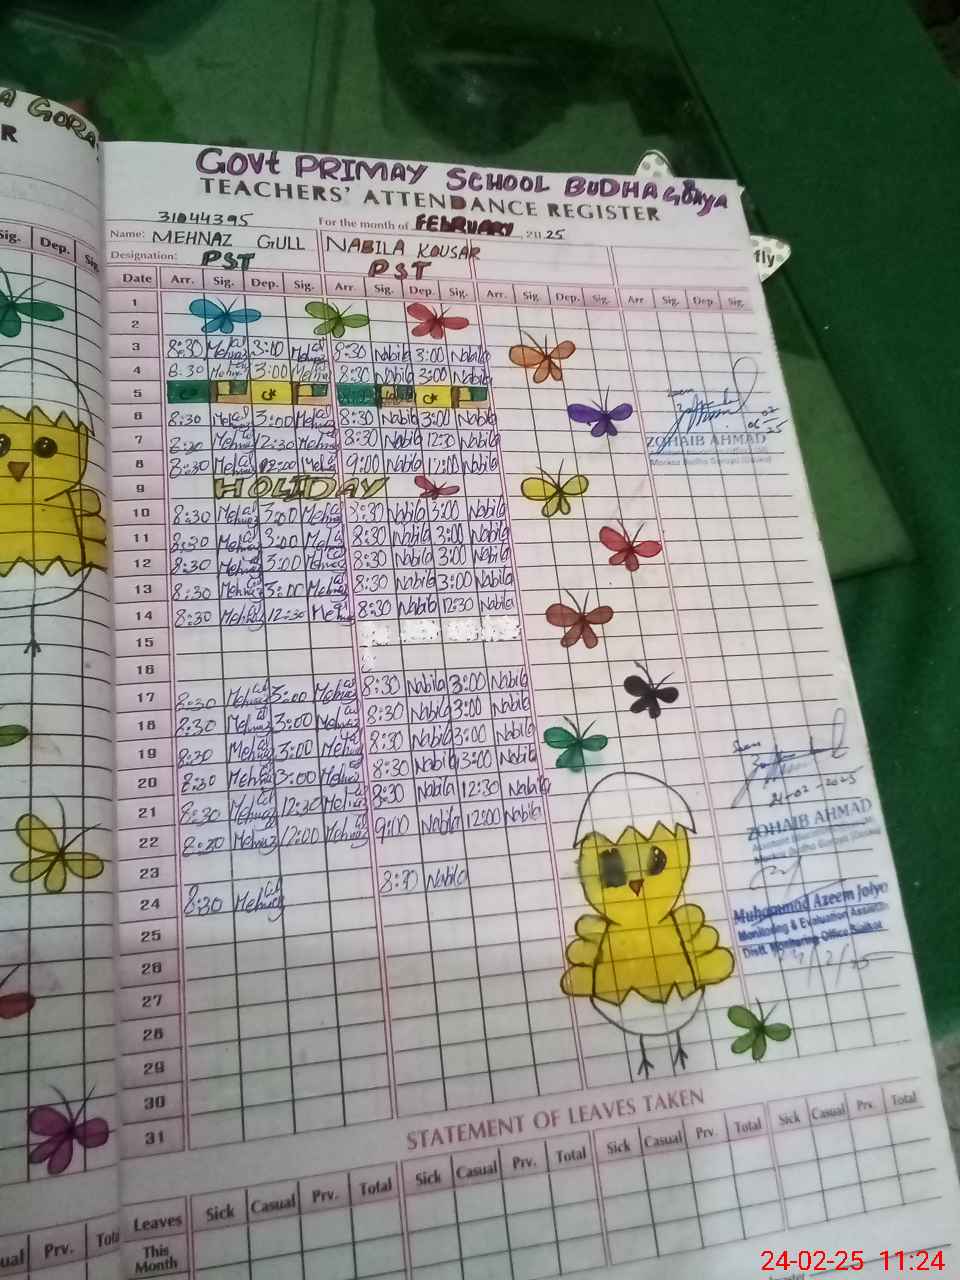 A GORA
R
Sig. Dep. Sig.
GOVt PRIMAY SCHOOL BUDHA GORYA
TEACHERS' ATTENDANCE REGISTER
31044395 For the month of FEBRUARY, 2025
Name: MEHNAZ GULL NABILA KOUSAR
Designation: PST PST
fly
Date Arr. Sig. Dep. Sig. Arr. Sig. Dep. Sig. Arr. Sig. Dep. Sig. Arr Sig. Dep. Sig.
1
2
3 8:30 Mehnaz 3:00 Mehnaz 8:30 Nabila 3:00 Nabila
4 8:30 Mehnaz 3:00 Mehnaz 8:30 Nabila 3:00 Nabila
5
6 8:30 Mehnaz 3:00 Mehnaz 8:30 Nabila 3:00 Nabila
7 8:30 Mehnaz 12:30 Mehnaz 8:30 Nabila 12:30 Nabila
8 8:30 Mehnaz 12:00 Mehnaz 9:00 Nabila 12:00 Nabila
ZOHAIB AHMAD
9 HOLIDAY
10 8:30 Mehnaz 3:00 Mehnaz 8:30 Nabila 3:00 Nabila
11 8:30 Mehnaz 3:00 Mehnaz 8:30 Nabila 3:00 Nabila
12 8:30 Mehnaz 3:00 Mehnaz 8:30 Nabila 3:00 Nabila
13 8:30 Mehnaz 3:00 Mehnaz 8:30 Nabila 3:00 Nabila
14 8:30 Mehnaz 12:30 Mehnaz 8:30 Nabila 12:30 Nabila
15
16
17 8:30 Mehnaz 3:00 Mehnaz 8:30 Nabila 3:00 Nabila
18 8:30 Mehnaz 3:00 Mehnaz 8:30 Nabila 3:00 Nabila
19 8:30 Mehnaz 3:00 Mehnaz 8:30 Nabila 3:00 Nabila
20 8:30 Mehnaz 3:00 Mehnaz 8:30 Nabila 3:00 Nabila
21 8:30 Mehnaz 12:30 Mehnaz 8:30 Nabila 12:30 Nabila
22 8:30 Mehnaz 12:00 Mehnaz 9:00 Nabila 12:00 Nabila
21-02-2025
ZOHAIB AHMAD
23
24 8:30 Mehnaz 8:30 Nabila
Muhammad Azeem Joiya
Monitoring & Evaluation Assistant
Distt. Monitoring Office Sialkot
25
26
27
28
29
30
31
STATEMENT OF LEAVES TAKEN
Leaves Sick Casual Prv. Total Sick Casual Prv. Total Sick Casual Prv. Total Sick Casual Prv. Total
This Month
ual Prv. Tota
24-02-25 11:24